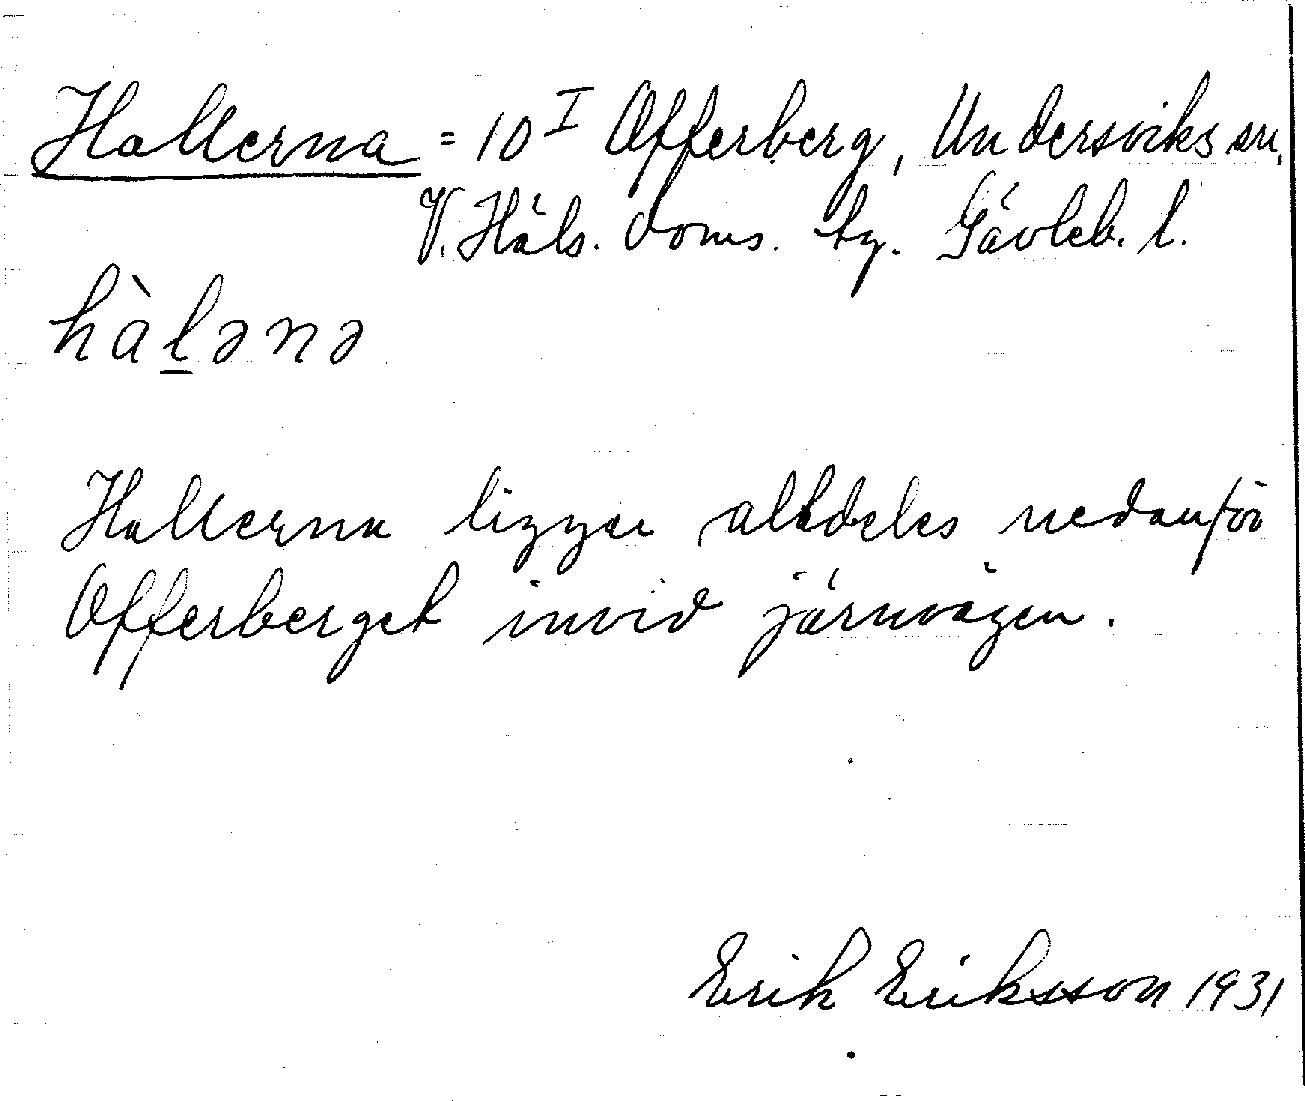 Hallerna = 10 I Offerberg, Undersviks sn,
V. Häls. doms. tg. Gävleb. l.
hàl̲ənə
Hallerna ligger alldeles nedanför
Offerberget invid järnvägen.
Erik Eriksson 1931